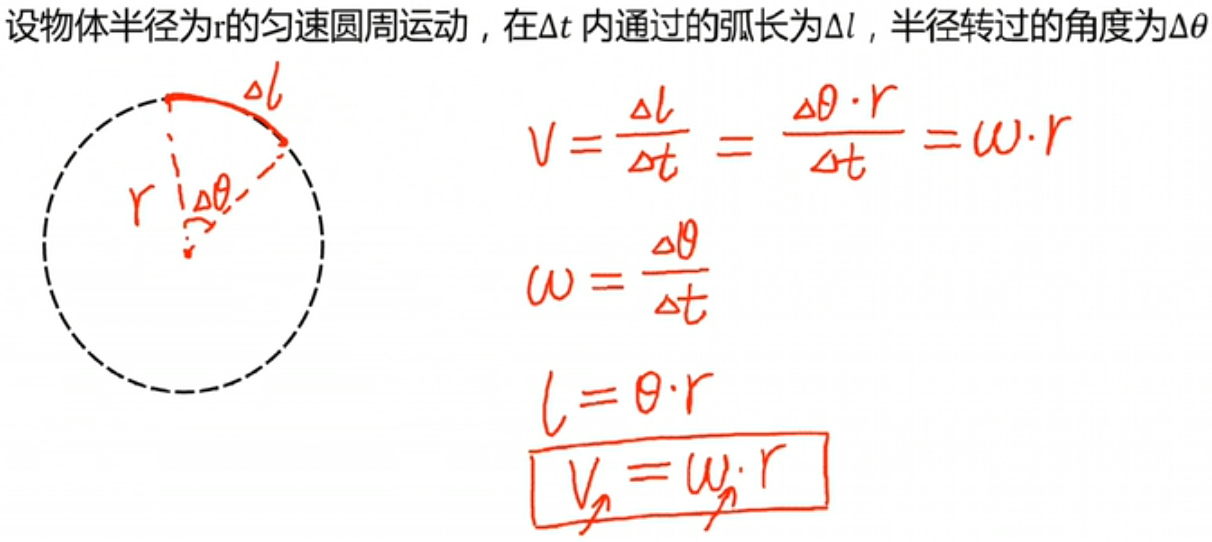 设物体半径为r的匀速圆周运动，在Δt 内通过的弧长为Δl，半径转过的角度为Δθ
Δl
r
Δθ
V = Δl/Δt = Δθ·r/Δt = ω·r
ω = Δθ/Δt
l = θ·r
V = ω·r